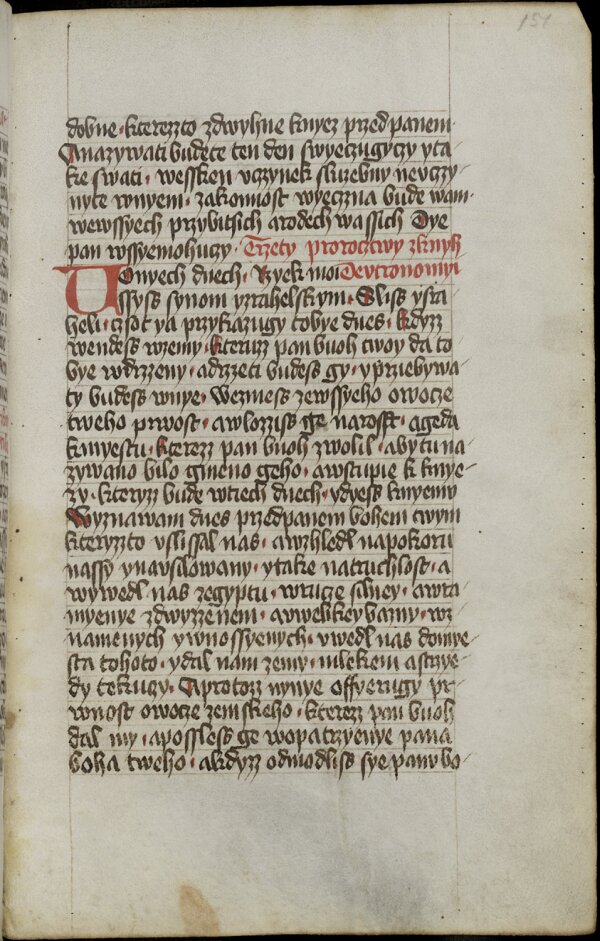 151
dobne · kterezzto zdwyhne knyez przed panem
A nazywati budete ten den swyeczugyczy yta-
ke swati · wessken vczynek sluzebny nevczy-
nyte wnyem · zakonnost wyeczna bude wam ·
wewssyech przybitcich arodech wassich Dye
pan wssyemohuczy · Trzety proroctwy zknyh
Wonyech dnech · Rzyekl moi Devtronomii
ssyss synom yzrahelskym · Sliss ysra-
heli · czsot ya przykazugy tobye dnes · kdyzz
wendess wzemy · kteruzz pan buoh twoy da to-
bye wdrzeny · adrzeti budess gy · yprzebywa-
ty budess wnye · Wezmess zewssyeho owocze
tweho prwost · awlozziss ge narosst · ageda
kmyestu · kterezz pan buoh zwolil · abytuna-
zywano bilo gmeno geho · awstupie k knye-
zy · kteryzz bude wtiech dnech · ydyess knyemv
Wyznawam dnes przedpanem bohem twym
kteryzzto vslissal nas · awzhledl napokoru
nassy ynavsilowany · ytake natruchlost · a
wywedl nas zegyptu · wrucze silney · awra-
myenye zdwyzzenem · awwelikey bazny · wz-
namenych ywnossyenych · vwedl nas domye-
sta tohoto · ydal nam zemy · mlekem astrzye-
dy tekuczy · A protozz nynye offyerugy pr-
wnost owocze zemskeho · kterezz pan buoh
dal my · apossless ge wopatrzyenye pana
boha tweho · akdyzz odmodliss sye panv bo-